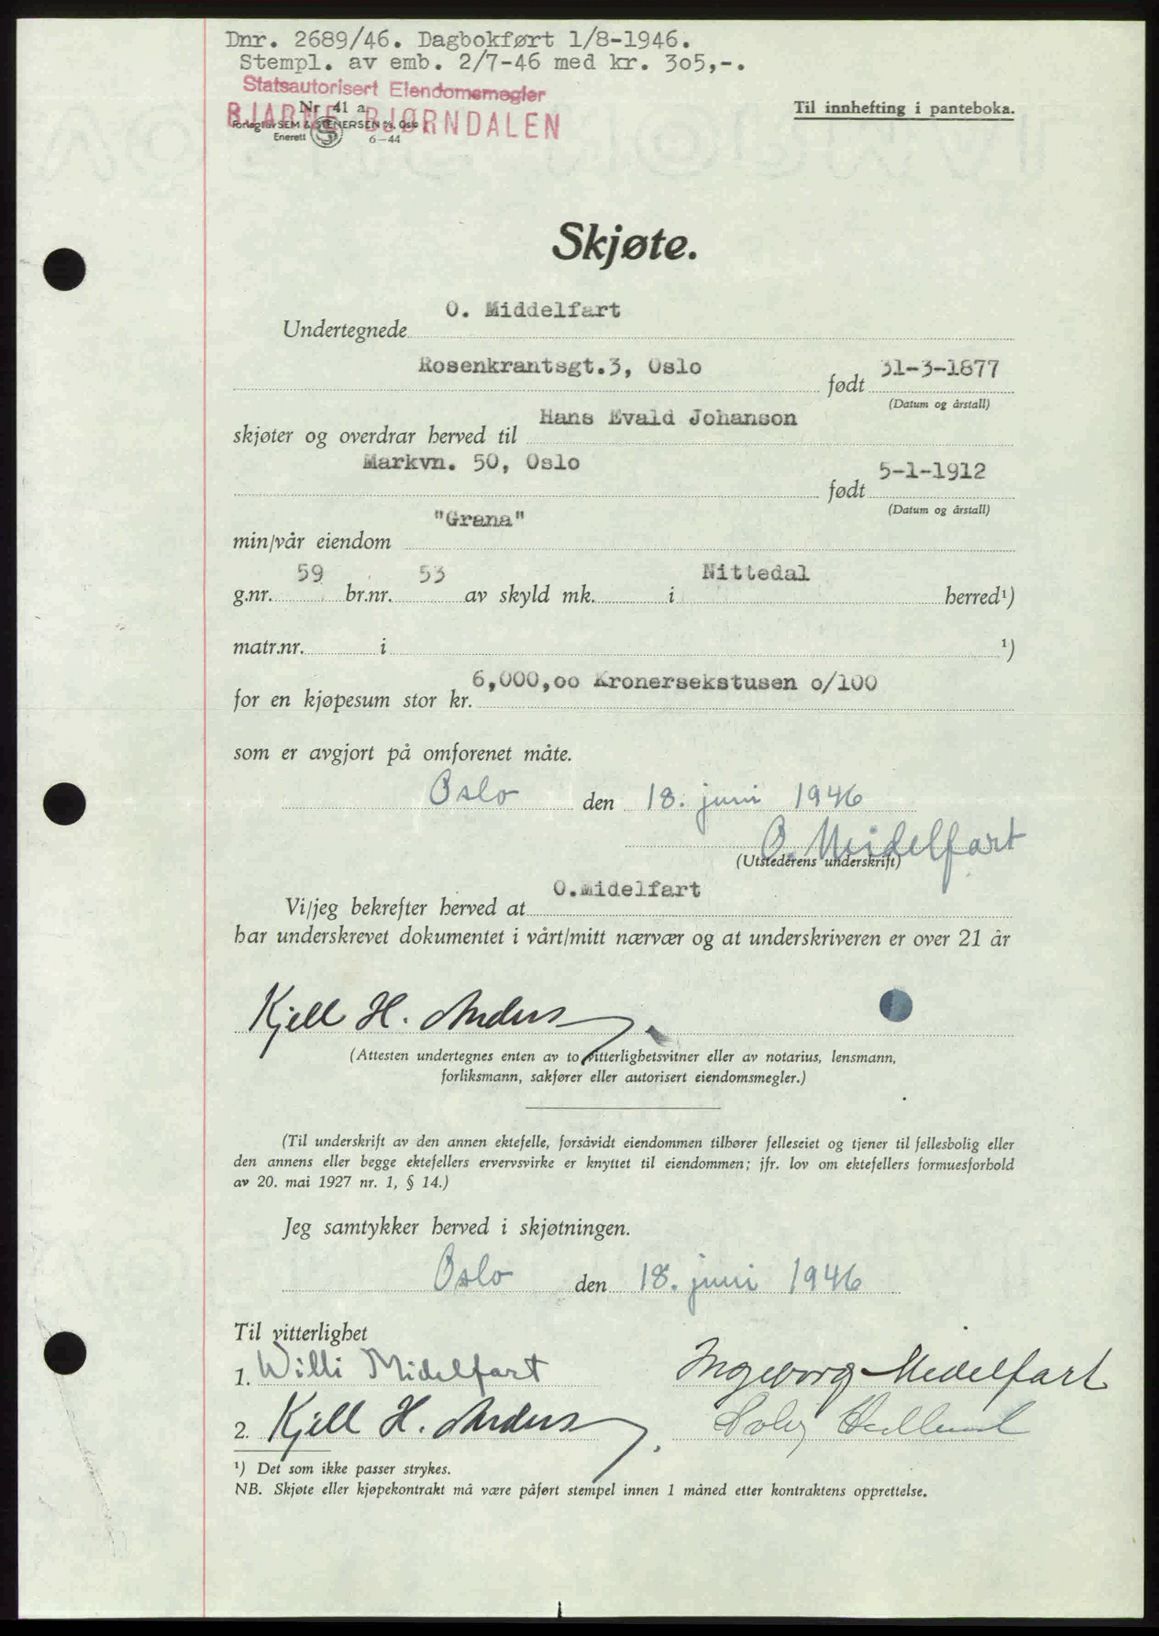 Dnr. 2689/46. Dagbokført 1/8-1946.
Stempl. av emb. 2/7-46 med kr. 305,-.
Statsautorisert Eiendomsmegler
BJARNE BJØRNDALEN
Nr. 41 a
Forlag av SEM & STENERSEN A/S, Oslo
Enerett 6-44
Til innhefting i panteboka.
Skjøte.
Undertegnede O. Middelfart
Rosenkrantsgt.3, Oslo født 31-3-1877
(Datum og årstall)
skjøter og overdrar herved til Hans Evald Johanson
Markvn. 50, Oslo født 5-1-1912
(Datum og årstall)
min/vår eiendom "Grana"
g.nr. 59 br.nr. 53 av skyld mk. i Nittedal herred¹)
matr.nr. i ¹)
for en kjøpesum stor kr. 6,000,oo Kronersekstusen o/100
som er avgjort på omforenet måte.
Oslo den 18. juni 1946
O. Midelfart
(Utstederens underskrift)
Vi/jeg bekrefter herved at O.Midelfart
har underskrevet dokumentet i vårt/mitt nærvær og at underskriveren er over 21 år
Kjell H. Anders
(Attesten undertegnes enten av to vitterlighetsvitner eller av notarius, lensmann,
forliksmann, sakfører eller autorisert eiendomsmegler.)
(Til underskrift av den annen ektefelle, forsåvidt eiendommen tilhører felleseiet og tjener til fellesbolig eller
den annens eller begge ektefellers ervervsvirke er knyttet til eiendommen; jfr. lov om ektefellers formuesforhold
av 20. mai 1927 nr. 1, § 14.)
Jeg samtykker herved i skjøtningen.
Oslo den 18. juni 1946
Til vitterlighet
1. Willi Midelfart Ingeborg Midelfart
2. Kjell H. Anders
¹) Det som ikke passer strykes.
NB. Skjøte eller kjøpekontrakt må være påført stempel innen 1 måned etter kontraktens opprettelse.